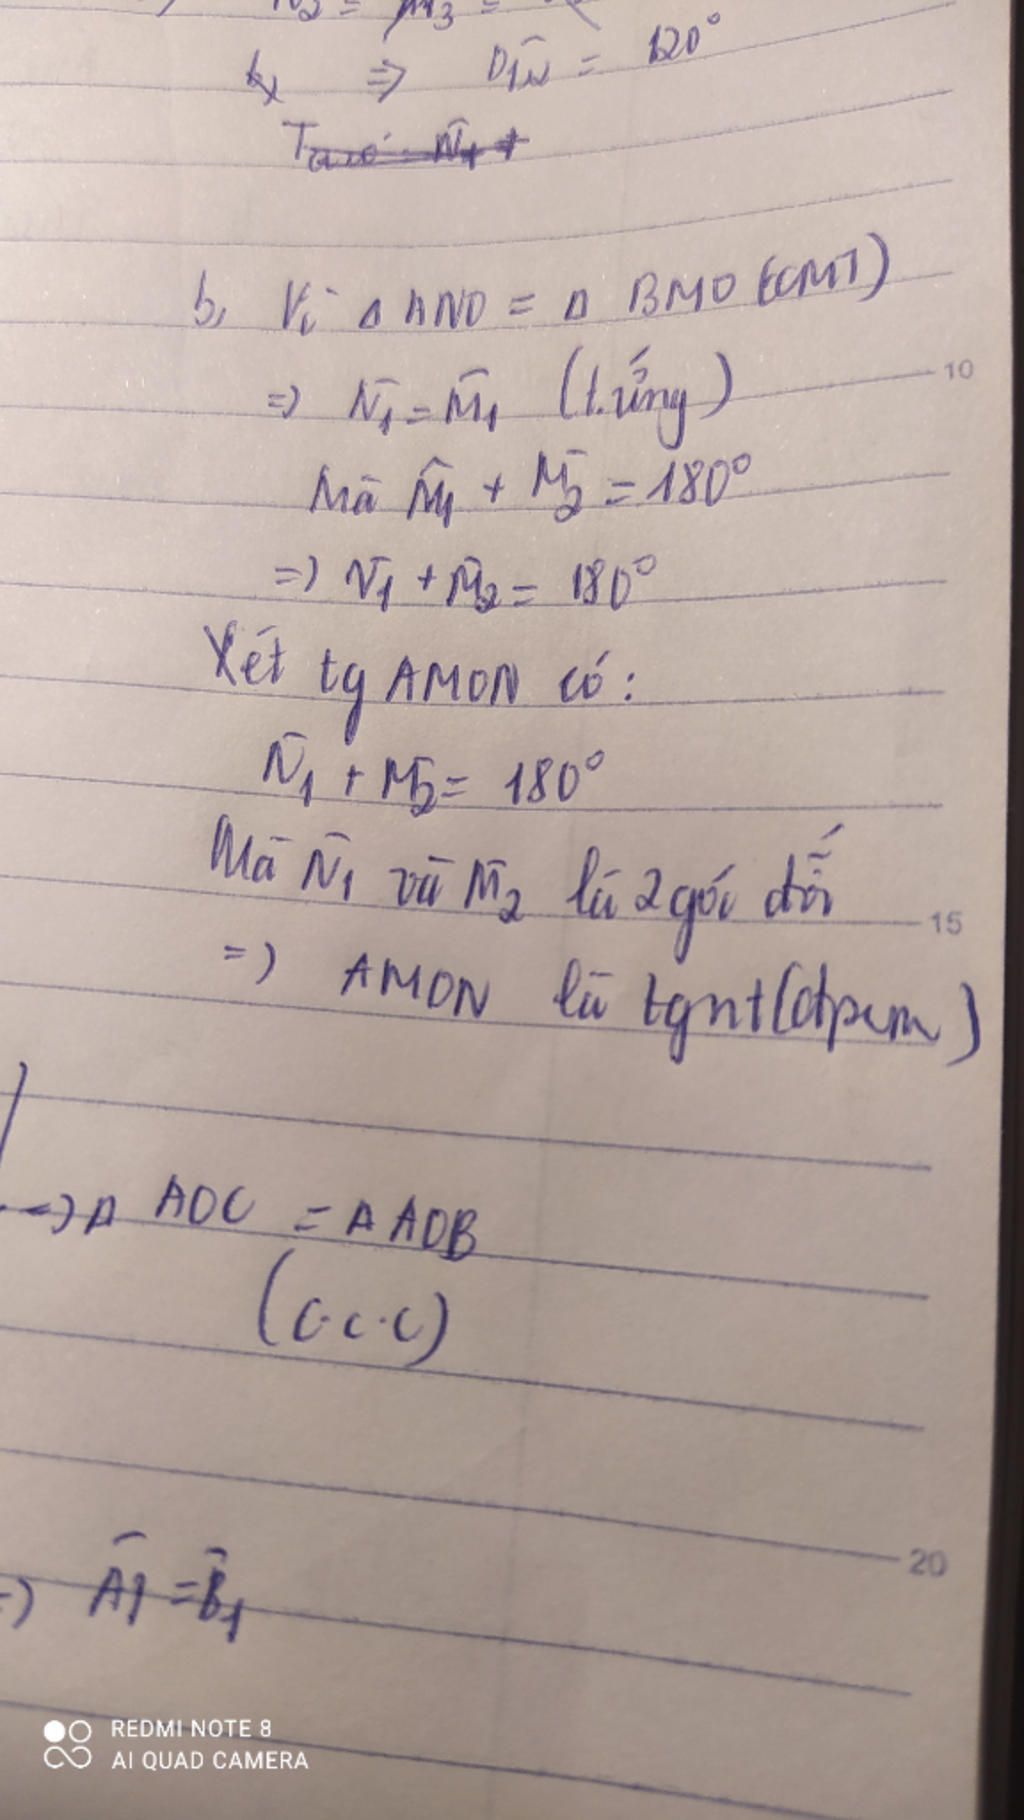 N2 = M3 =
b, ⇒ D1N̂ = 120°
Ta có N̂1 +
b, Vì Δ ANO = Δ BMO (CMT)
=> N̂1 = M̂1 (t.ứng)
Mà M̂1 + M̂2 = 180°
=> N̂1 + M̂2 = 180°
Xét tg AMON có:
N̂1 + M̂2 = 180°
Mà N̂1 và M̂2 là 2 góc đối
=> AMON là tgnt (đpcm)
=> Δ AOC = Δ AOB
(c.c.c)
=> Â1 = B̂1
10
15
20
REDMI NOTE 8
AI QUAD CAMERA